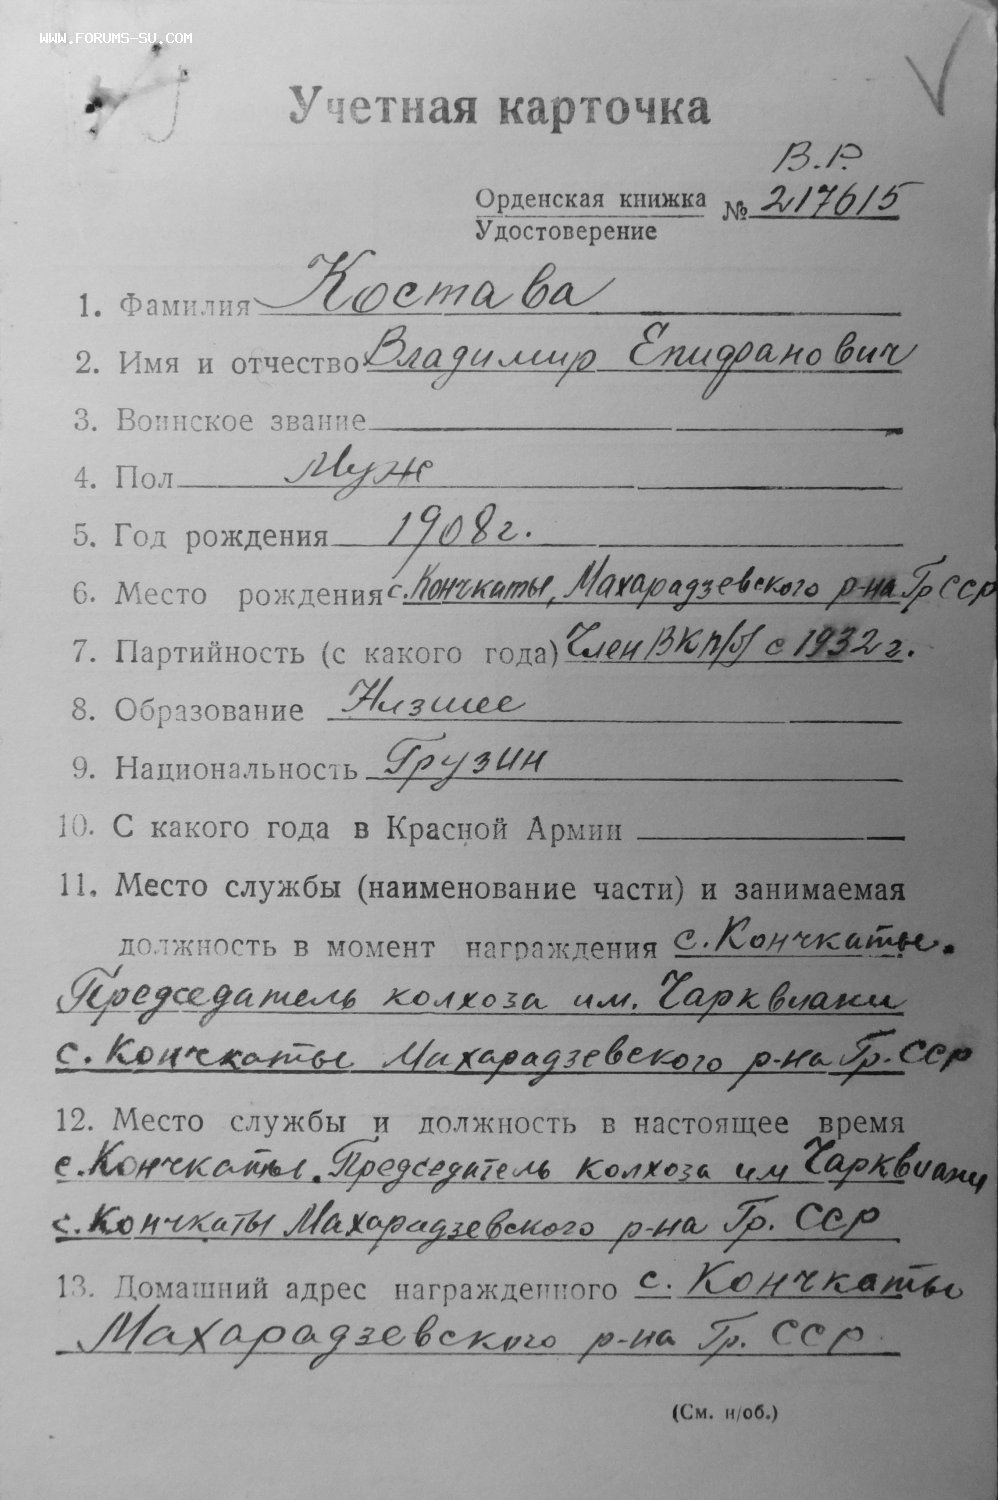 WWW.FORUMS-SU.COM
Учетная карточка
В.Р.
Орденская книжка
Удостоверение
№ 217615
1. Фамилия Костава
2. Имя и отчество Владимир Епифанович
3. Воинское звание
4. Пол Муж
5. Год рождения 1908г.
6. Место рождения с. Кончкаты, Махарадзевского р-на Гр ССР
7. Партийность (с какого года) Член ВКП/б/ с 1932 г.
8. Образование Низшее
9. Национальность Грузин
10. С какого года в Красной Армии
11. Место службы (наименование части) и занимаемая
должность в момент награждения с. Кончкаты.
Председатель колхоза им. Чарквиани
с. Кончкаты Махарадзевского р-на Гр. ССР
12. Место службы и должность в настоящее время
с. Кончкаты. Председатель колхоза им Чарквиани
с. Кончкаты Махарадзевского р-на Гр. ССР
13. Домашний адрес награжденного с. Кончкаты
Махарадзевского р-на Гр. ССР
(См. н/об.)